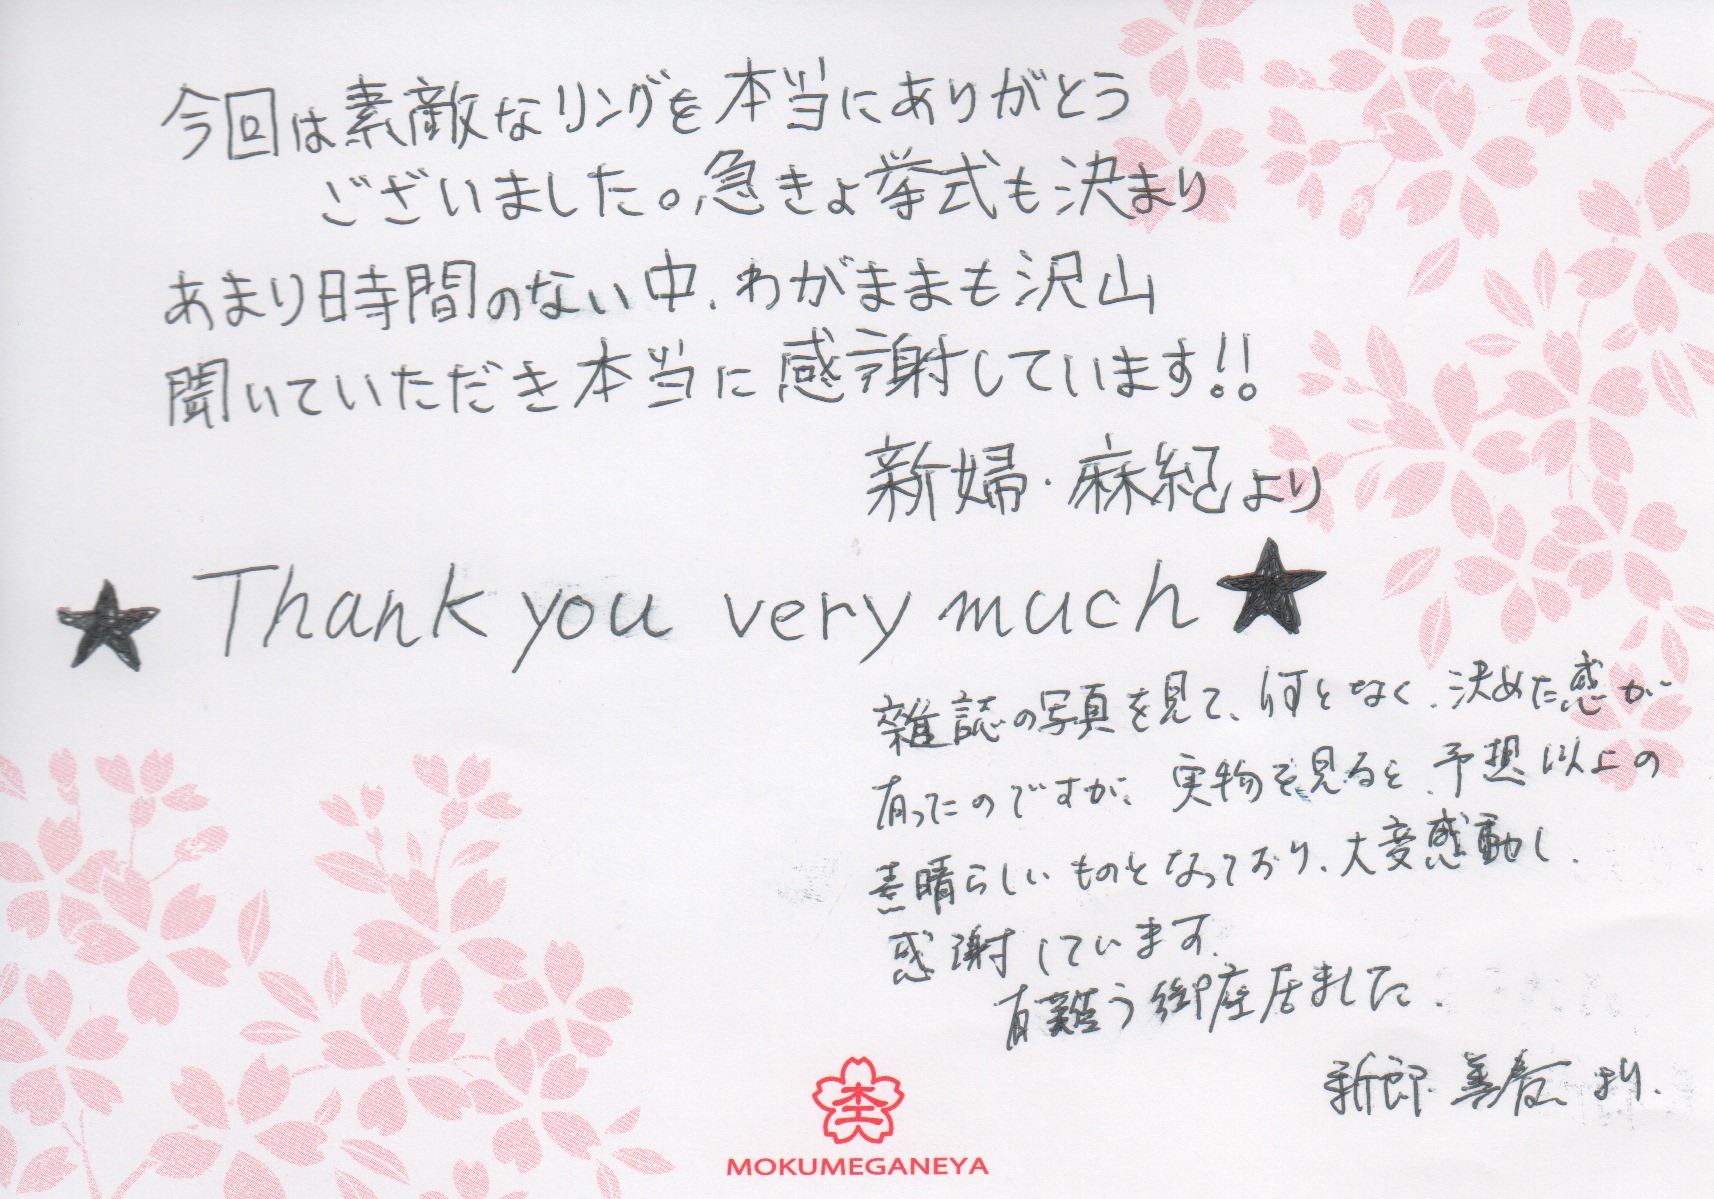 今回は素敵なリングを本当にありがとう
ございました。急きょ挙式も決まり
あまり時間のない中、わがままも沢山
聞いていただき本当に感謝しています!!
新婦・麻紀より
★ Thank you very much ★
雑誌の写真を見て、何となく、決めた感が
有ったのですが、実物を見ると、予想以上の
素晴らしいものとなっており、大変感動し、
感謝しています。
有難う御座居ました。
新郎・善春より.
杢
MOKUMEGANEYA